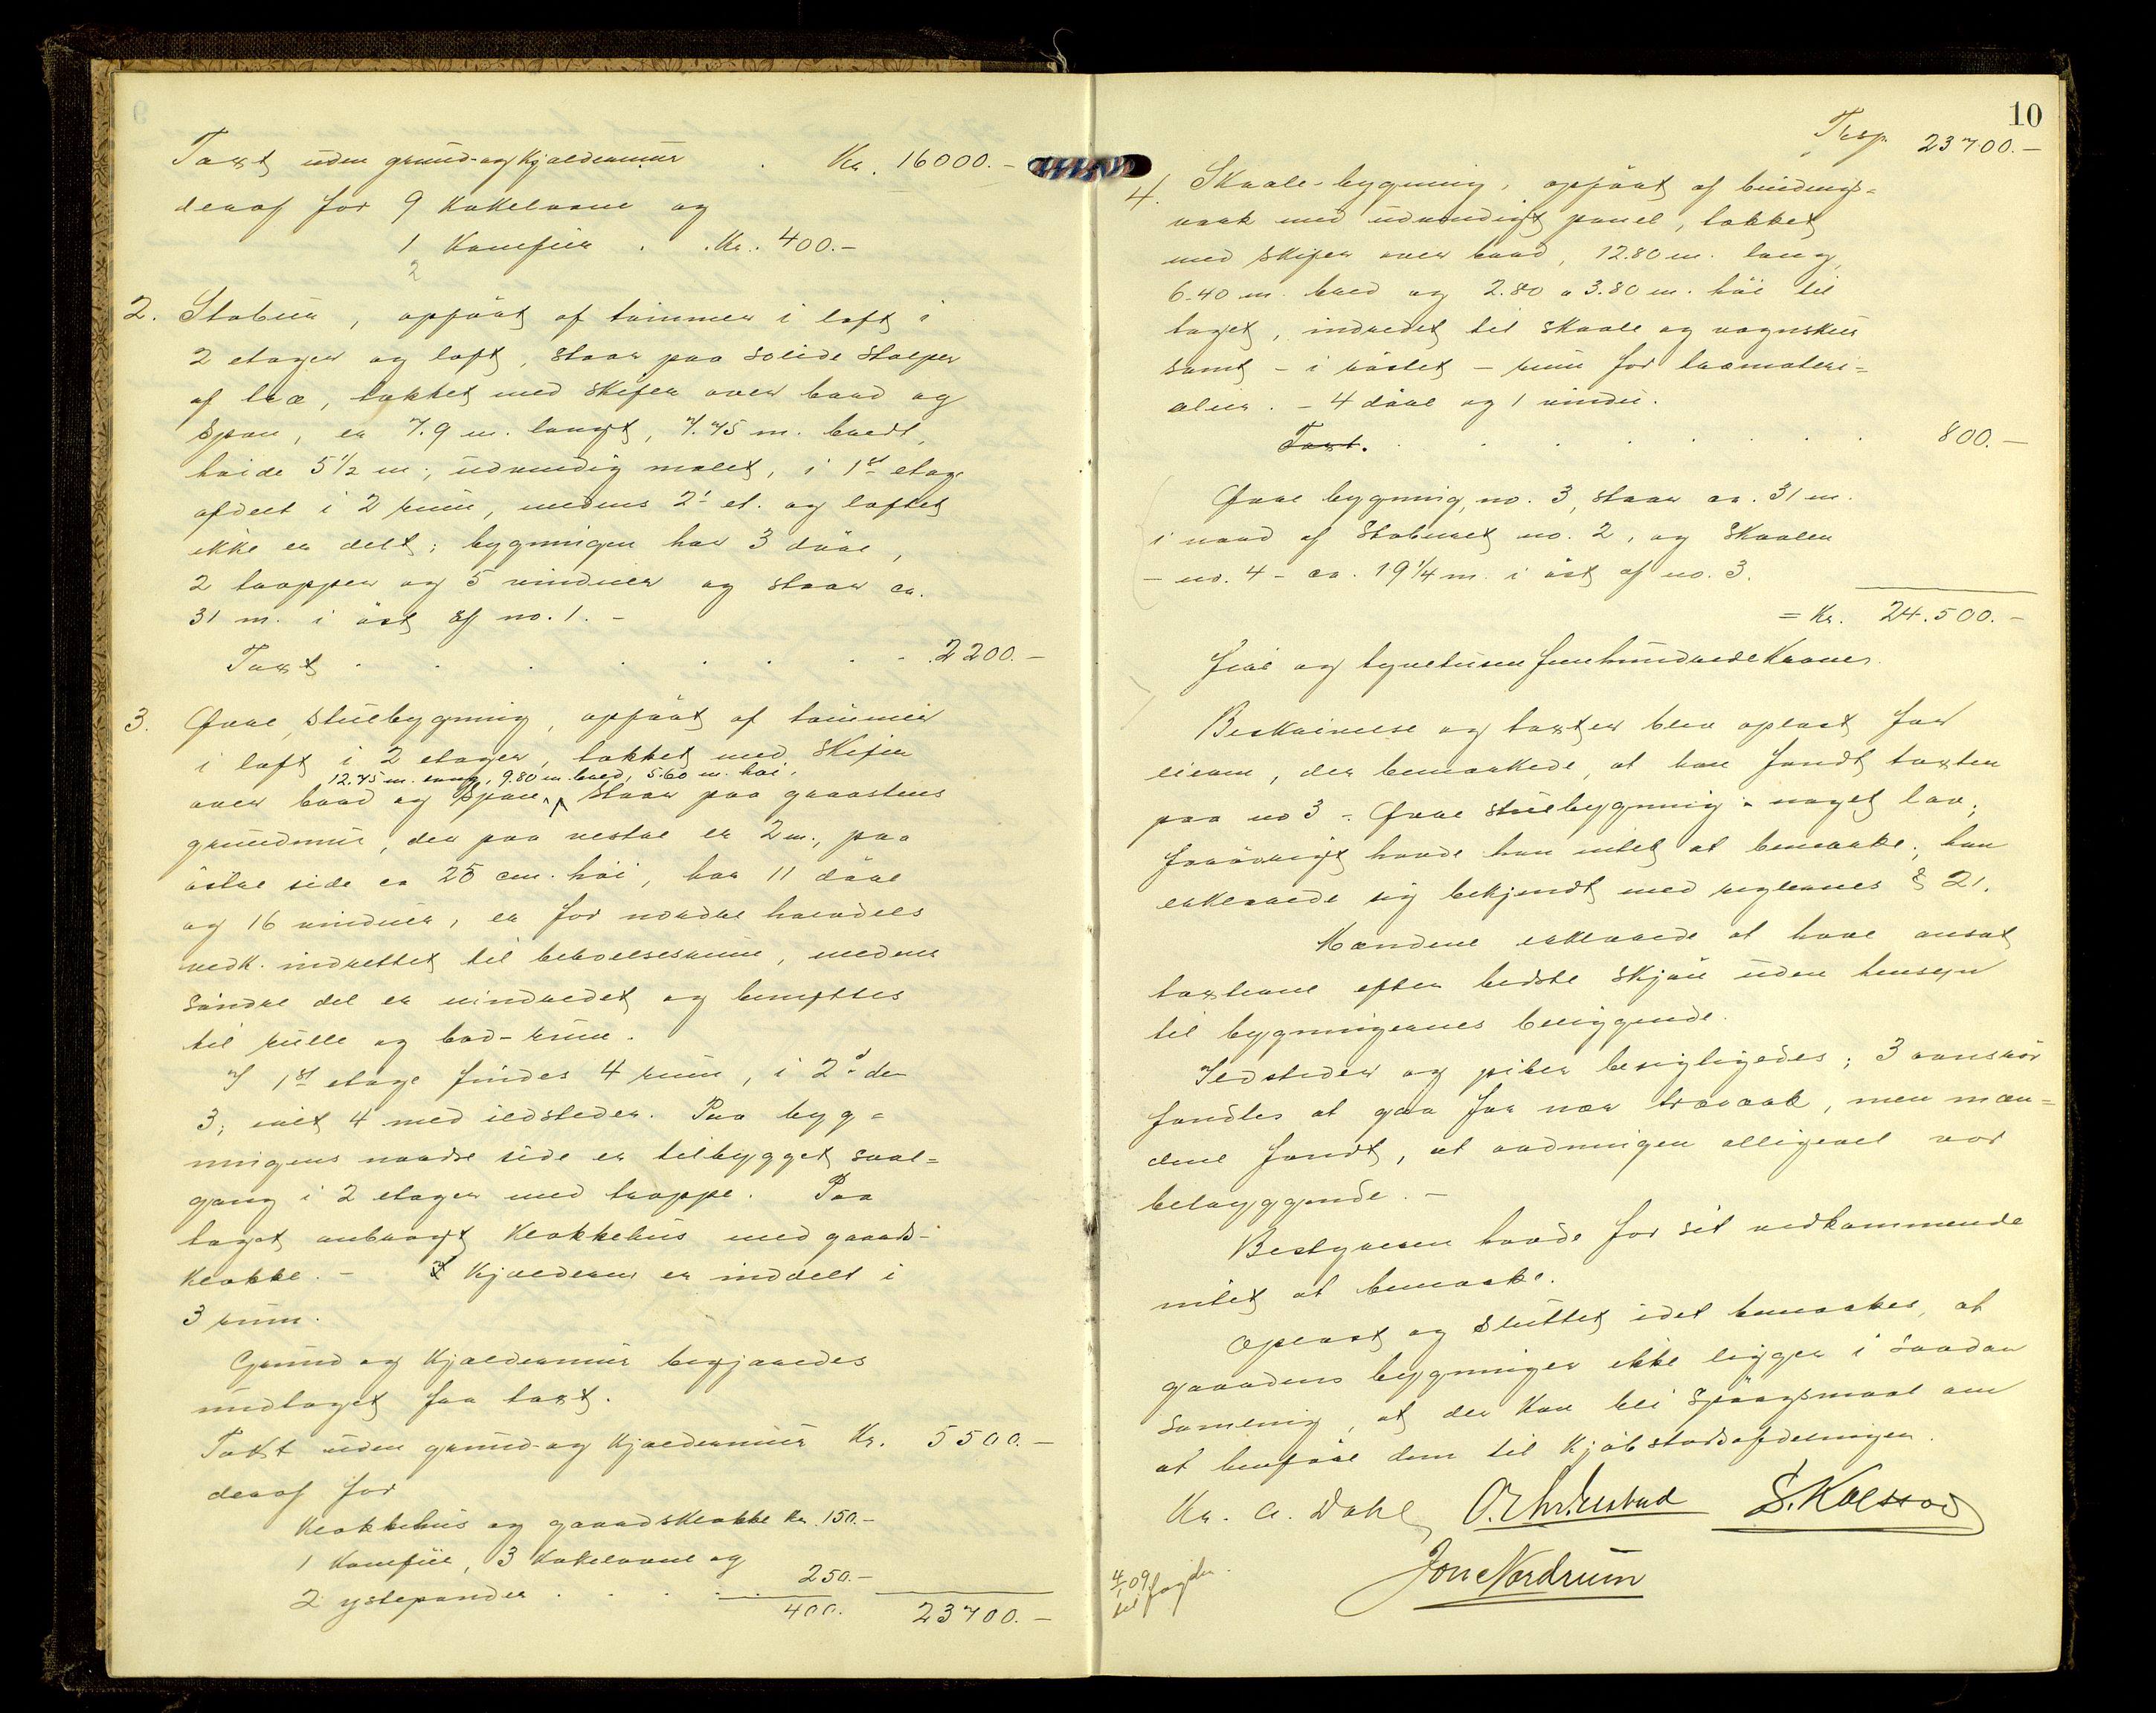 Taxt uden grund- og kjældermur . Kr. 16000.-
deraf for 9 kakelovne og
1 komfür . . Kr. 400.-
2
2. Stabur, opført af tømmer i laft i
2 etager og loft, staar paa solide stolper
af træ, tækket med skifer over bord og
spon, er 7.9 m. langt, 7.75 m. bredt,
høide 5 1/2 m., udvendig malet, i 1st etage
afdelt i 2 rum, medens 2' et. og loftet
ikke er delt; bygningen har 3 døre,
2 trapper og 5 vinduer og staar ca.
31 m. i øst af no. 1. -
Taxt . . . . . . . . 2200.-
3. Øvre stuebygning, opført af tømmer
i laft i 2 etager, tækket med skifer
12.75 m. lang, 9.80 m. bred, 5.60 m. høi,
over bord og spon, staar paa graastens
grundmur, der paa vestre er 2 m., paa
østre side er 25 cm. høi, har 11 døre
og 16 vinduer, er for nordre halvdels
vedk. indrettet til beboelsesrum, medens
søndre del er uindredet og benyttes
til rulle og bod-rum.
I 1st etage findes 4 rum, i 2d den
3, ialt 4 med ildsteder. Paa byg=
ningens nordre side er tilbygget sval=
gang i 2 etager med trappe. Paa
taget anbragt klokkehus med gaards-
klokke. - Kjælderen er inddelt i
3 rum.
Grund og kjældermur begjæredes
undtaget fra taxt.
Takst uden grund- og kjældermur Kr. 5500.-
deraf for
klokkehus og gaardsklokke Kr. 150.-
1 komfür, 3 kakelovne og
2 ystepander . . . . 250.-
400. 23700.-
10
Trsp. 23700.-
4. Skaale-bygning, opført af bindings=
værk med udvendigt panel, tækket
med skifer over bord, 12.80 m. lang,
6.40 m. bred og 2.80 a 3.80 m. høi til
taget, indredet til skaale og vognskur
samt - i røstet - rum for træmateri=
alier. - 4 døre og 1 vindu.
Taxt. . . . . . . . 800.-
Øvre bygning, no. 3, staar ca. 31 m.
i nord af Staburet no. 2, og Skaalen
- no. 4 - ca. 19 1/4 m. i øst af no. 3.
= Kr. 24.500.-
Fire og tyvetusen femhundrede Kroner.
Beskrivelse og taxter blev oplæst for
eieren, der bemærkede, at han fandt taxten
paa no 3 - Øvre stuebygning - noget lav;
forøvrigt havde han intet at bemærke; han
erklærede sig bekjendt med reglernes § 21.
Mændene erklærede at have ansat
taxterne efter bedste skjøn uden hensyn
til bygningernes beliggende.
Ildsteder og piber besigtigedes; 3 ovnsrør
fandtes at gaa for nær træværk, men mæn=
dene fandt, at ordningen alligevel var
betryggende. -
Bestyreren havde for sit vedkommende
intet at bemærke.
Oplæst og sluttet idet bemærkes, at
gaardens bygninger ikke ligger i saadan
samling, at der kan bli spørgsmaal om
at henføre dem til kjøbstadsafdelingen.
Kr. A. Dahl O. Chr. S. Kolsrod
Jon Nordrum
4/1 09
til fogden.